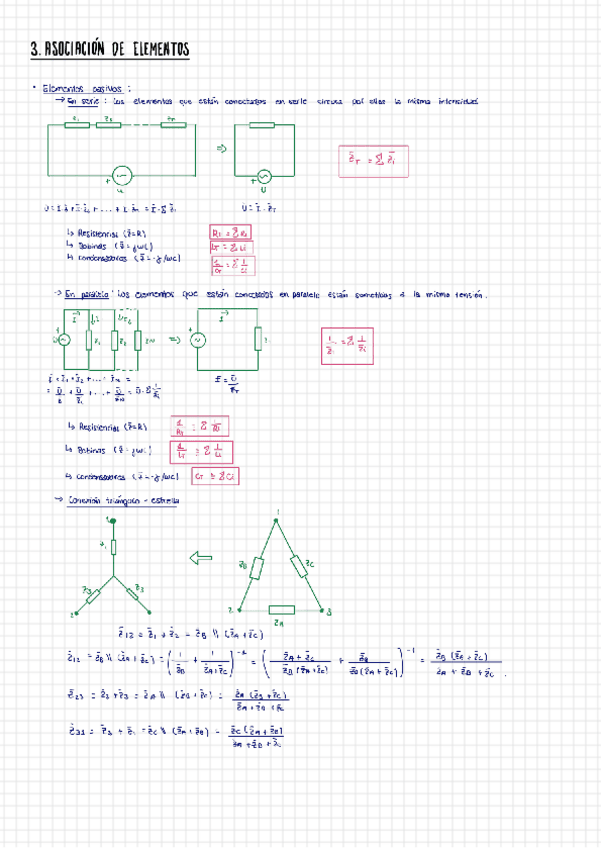 3. ASOCIACIÓN DE ELEMENTOS
• Elementos pasivos :
→ En serie : Los elementos que están conectados en serie circula por ellos la misma intensidad
Z̄T = Σ Z̄i
Ū = Ī · Z̄T
↳ Resistencias (Z̄=R)
RT = Σ Ri
↳ Bobinas (Z̄ = jωL)
LT = Σ Li
↳ Condensadores (Z̄ = -j/ωC)
1/CT = Σ 1/Ci
→ En paralelo : Los elementos que están conectados en paralelo están sometidos a la misma tensión.
Ī = Ū/Z̄T
↳ Resistencias (Z̄=R)
↳ Bobinas (Z̄ = jωL)
↳ Condensadores (Z̄ = -j/ωC)
CT = Σ Ci
→ Conexión triángulo - estrella
1
1
ZB
ZC
Z3
2
3
2
3
ZA
Z̄12 = Z̄1 + Z̄2 = Z̄B \\ (Z̄A + Z̄C)
Z̄12 = Z̄B \\ (Z̄A + Z̄C) = (1/Z̄B + 1/(Z̄A+Z̄C))^-1 = ((Z̄A + Z̄C)/(Z̄B(Z̄A+Z̄C)) + Z̄B/(Z̄B(Z̄A+Z̄C)))^-1 = Z̄B(Z̄A+Z̄C)/(Z̄A + Z̄B + Z̄C).
Z̄23 = Z̄2 + Z̄3 = Z̄A \\ (Z̄B + Z̄C) = Z̄A(Z̄B+Z̄C)/(Z̄A + Z̄B + Z̄C)
Z̄31 = Z̄3 + Z̄1 = Z̄C \\ (Z̄A + Z̄B) = Z̄C(Z̄A+Z̄B)/(Z̄A + Z̄B + Z̄C)